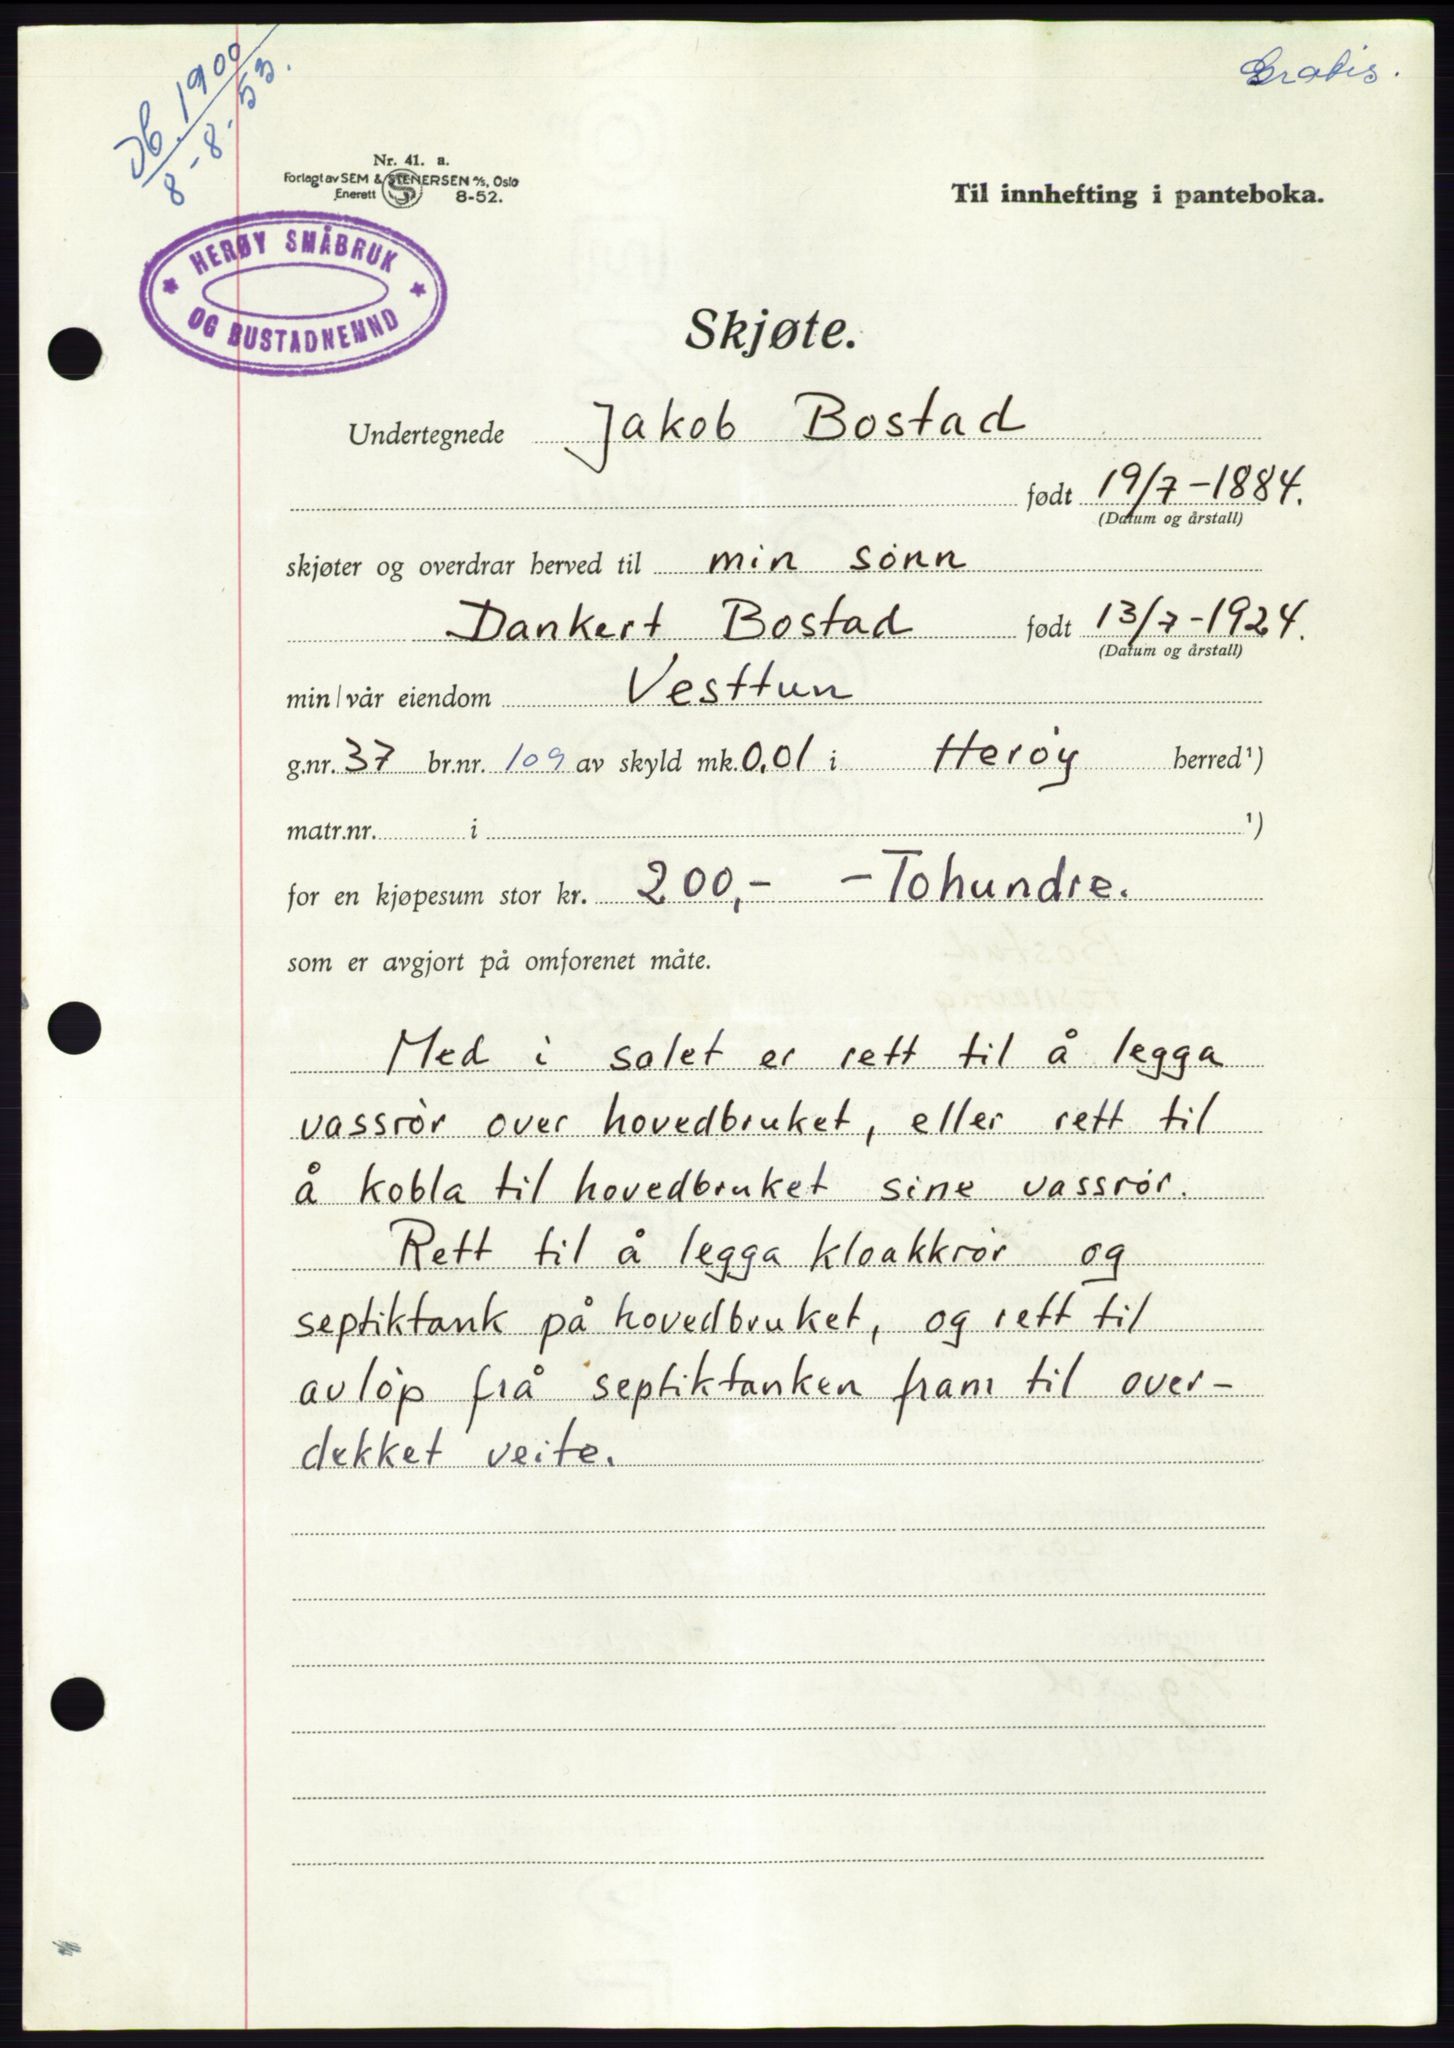 Jb. 1900
8-8-53.
Gratis.
Nr. 41. a.
Forlagt av SEM & STENERSEN A/S, Oslo
Enerett 8-52.
Til innhefting i panteboka.
HERØY SMÅBRUK
OG BUSTADNEMND
Skjøte.
Undertegnede Jakob Bostad
født 19/7-1884.
(Datum og årstall)
skjøter og overdrar herved til min sønn
Dankert Bostad født 13/7-1924.
(Datum og årstall)
min/vår eiendom Vesttun
g.nr. 37 br.nr. 109 av skyld mk. 0,01 i Herøy herred¹)
matr.nr. i ¹)
for en kjøpesum stor kr. 200,- - Tohundre.
som er avgjort på omforenet måte.
Med i salet er rett til å legga
vassrør over hovedbruket, eller rett til
å kobla til hovedbruket sine vassrør.
Rett til å legga kloakkrør og
septiktank på hovedbruket, og rett til
avløp frå septiktanken fram til over-
dekket veite.